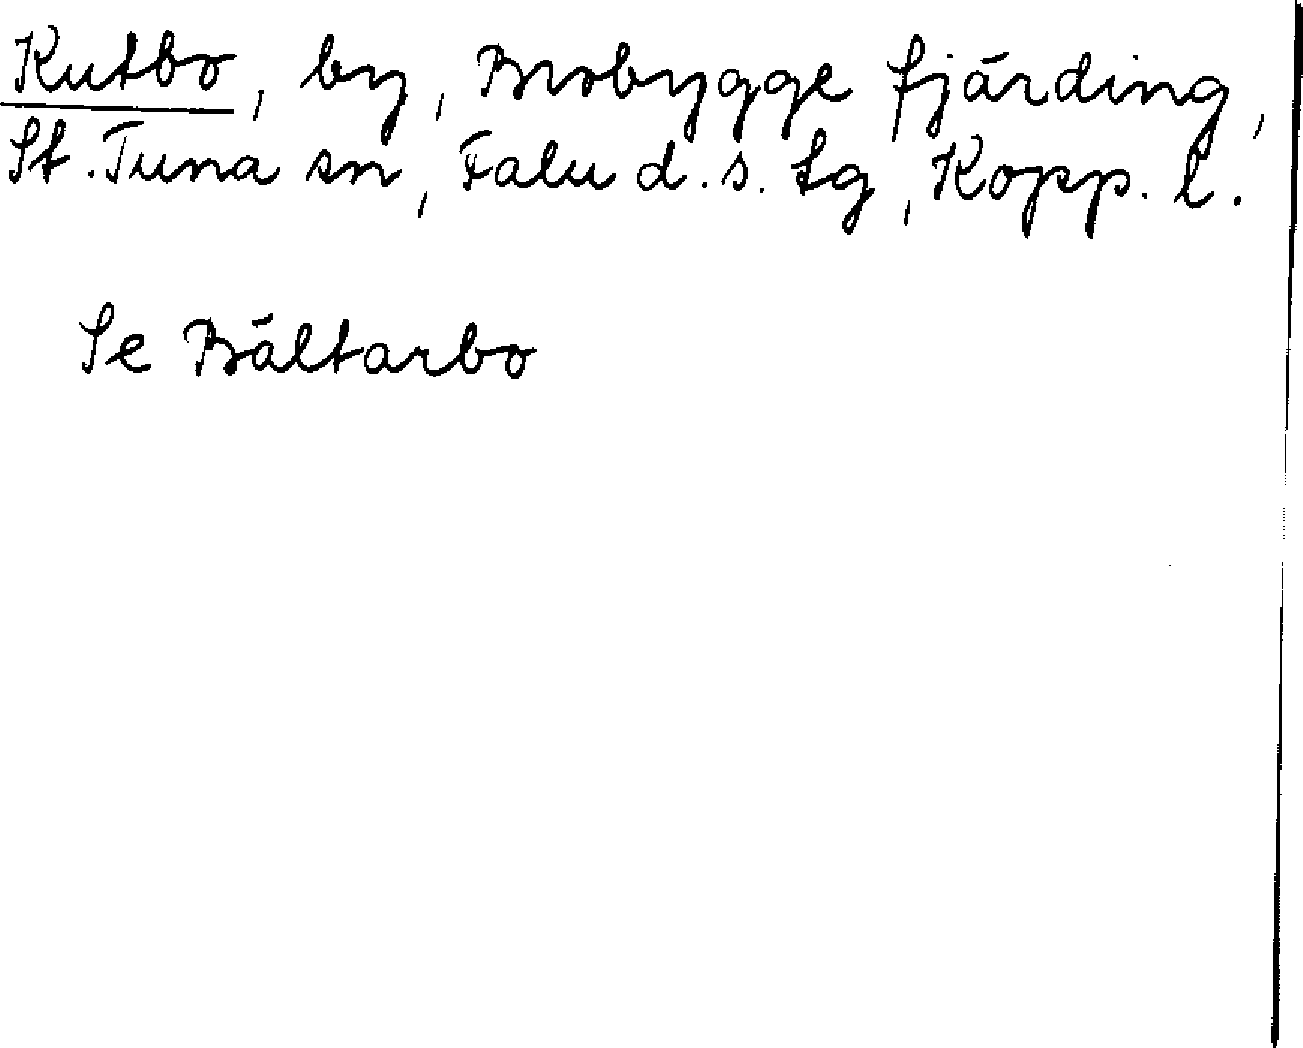 Kutbo, by, Brobygge fjärding,
St. Tuna sn, Falu d. s. tg, Kopp. l.
Se Bältarbo